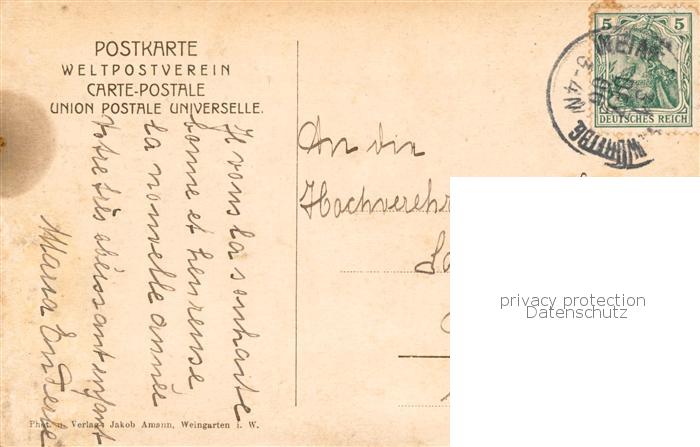 POSTKARTE
WELTPOSTVEREIN
CARTE-POSTALE
UNION POSTALE UNIVERSELLE.
5 5
DEUTSCHES REICH
3-4N
WÜRTTBG
An die
Hochverehr
privacy protection
Datenschutz
Je vous la souhaite
bonne et heureuse
la nouvelle année
Votre très obéissant enfant
Maria
Phot. u. Verlag Jakob Amann, Weingarten i. W.